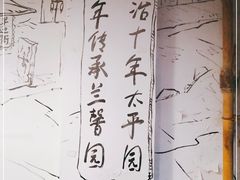 十年太平园
年传承兰馨园